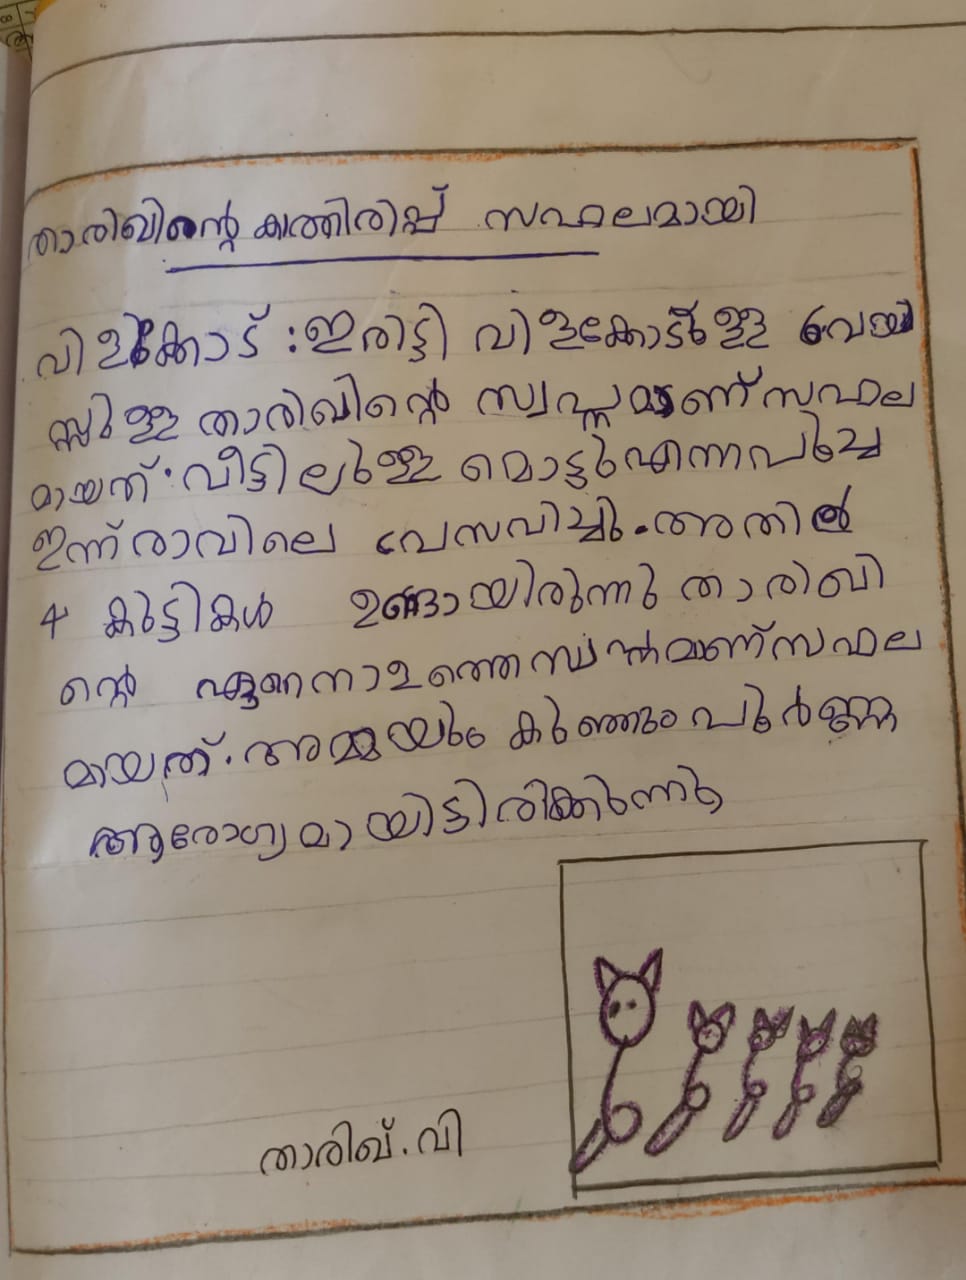 താരിഖിന്റെ കാത്തിരിപ്പ് സഫലമായി
വിളക്കോട് : ഇരിട്ടി വിളക്കോട്ടുള്ള
താരിഖിന്റെ സ്വപ്നമാണ് സഫല
മായത്. വീട്ടിലുള്ള മൊട്ടു എന്ന പൂച്ച
ഇന്ന് രാവിലെ പ്രേസവിച്ചു. അതിൽ
4 കുട്ടികൾ ഉണ്ടായിരുന്നു താരിഖി
ന്റെ സ്വപ്നമാണ് സഫല
മായത്. അമ്മയും കുഞ്ഞും പൂർണ്ണ
ആരോഗ്യമായിട്ടിരിക്കുന്നു
താരിഖ്. വി